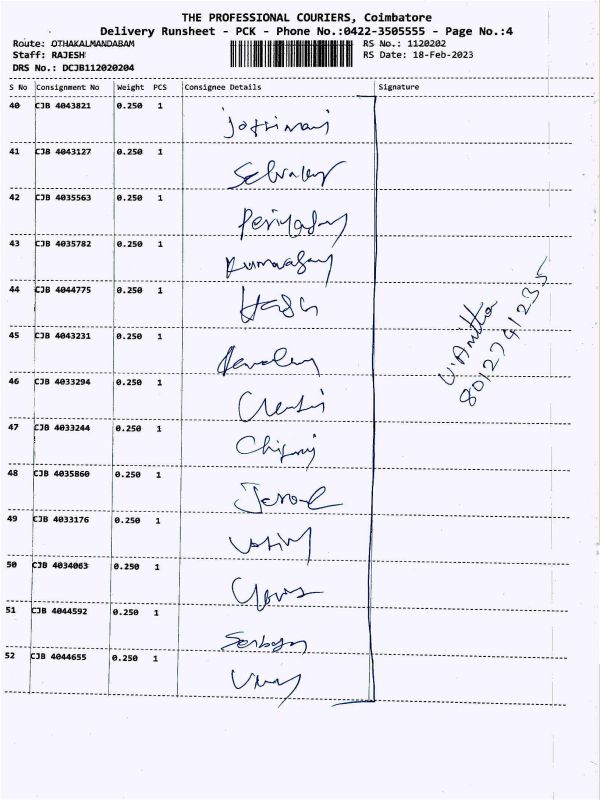 THE PROFESSIONAL COURIERS, Coimbatore
Delivery Runsheet - PCK - Phone No.:0422-3505555 - Page No.:4
Route: OTHAKALMANDABAM
RS No.: 1120202
Staff: RAJESH
RS Date: 18-Feb-2023
DRS No.: DCJB112020204
S No Consignment No Weight PCS Consignee Details Signature
40 CJB 4043821 0.250 1
41 CJB 4043127 0.250 1
42 CJB 4035563 0.250 1
43 CJB 4035782 0.250 1
44 CJB 4044775 0.250 1
45 CJB 4043231 0.250 1
46 CJB 4033294 0.250 1
47 CJB 4033244 0.250 1
48 CJB 4035860 0.250 1
49 CJB 4033176 0.250 1
50 CJB 4034063 0.250 1
51 CJB 4044592 0.250 1
52 CJB 4044655 0.250 1
V. Anitha
8012741235